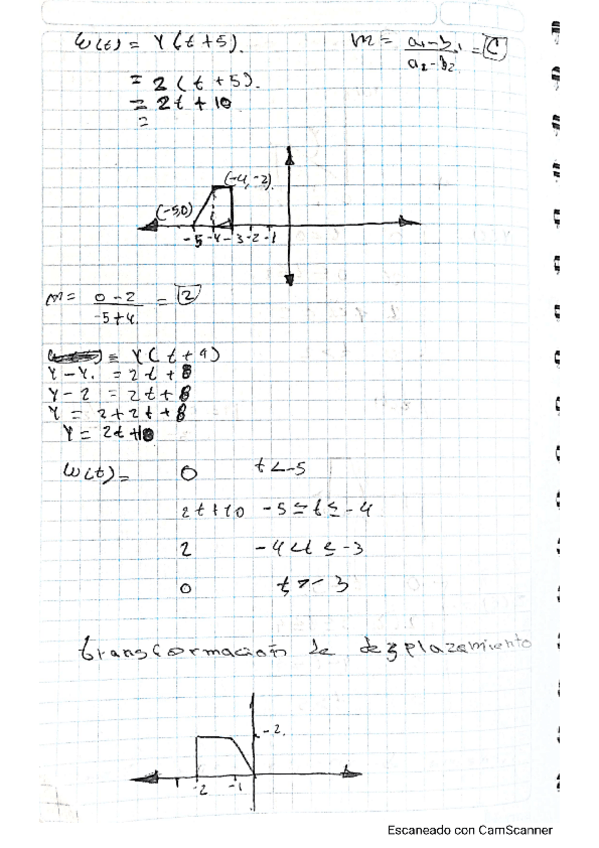 ω(t) = Y(t+5).
m = a₁-b₁ / a₂-b₂ = C
= 2(t+5).
= 2t+10
=
(-4,-2)
(-5,0)
-5 -4 -3 -2 -1
m = 0-2 / -5+4. = 2
= Y(t+4)
Y-Y₁ = 2t+8
Y-2 = 2t+8
Y = 2+2t+8
Y = 2t+10
ω(t) = 0 t<-5
2t+10 -5≤t≤-4
2 -4<t≤-3
0 t>-3
transformación de dezplazamiento
-2.
-2 -1
Escaneado con CamScanner